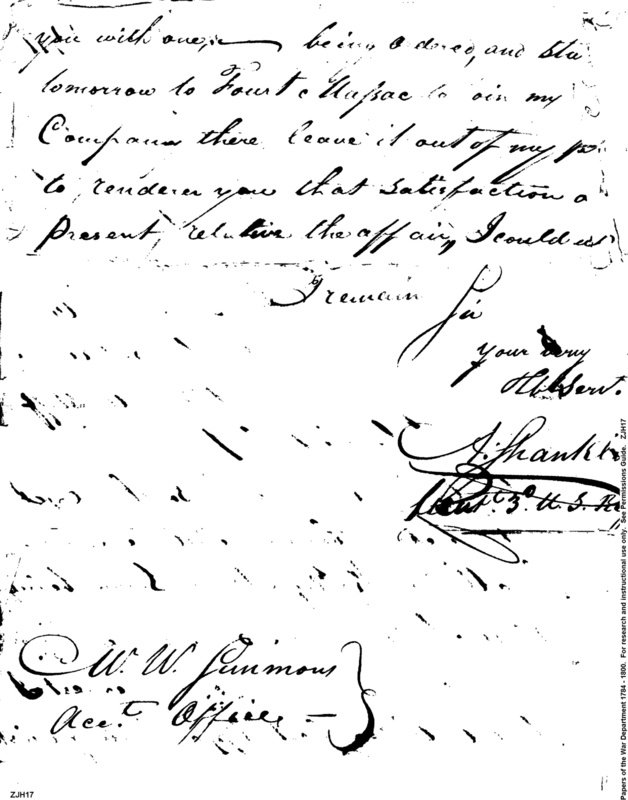 you with one, being ordered, and
tomorrow to Fourt Massac to oin my
Company there leave it out of my
to renderer you that satisfaction a
present, relative the affair, I could
I remain
Sir
your very
Hble Servt.
A. Shankl
Lieut. 3d U. S. R
W. W. Simmons
Acct. Office
Papers of the War Department 1784 - 1800. For research and instructional use only. See Permissions Guide. ZJH17
ZJH17